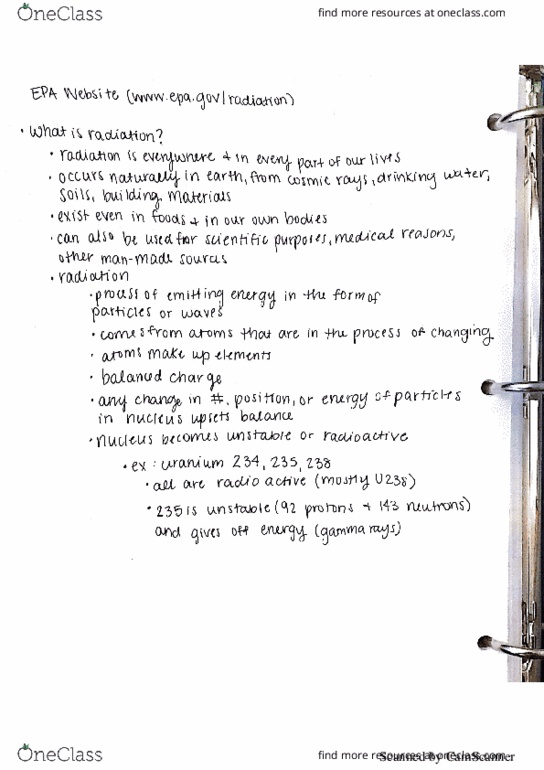 OneClass
find more resources at oneclass.com
EPA Website (www.epa.gov/radiation)
• What is radiation?
• radiation is everywhere + in every part of our lives
• occurs naturally in earth, from cosmic rays, drinking water,
soils, building materials
• exist even in foods + in our own bodies
• can also be used for scientific purposes, medical reasons,
other man-made sources
• radiation
• process of emitting energy in the form of
particles or waves
• comes from atoms that are in the process of changing
• atoms make up elements
• balanced charge
• any change in #, position, or energy of particles
in nucleus upsets balance
• nucleus becomes unstable or radioactive
• ex: uranium 234, 235, 238
• all are radioactive (mostly U238)
• 235 is unstable (92 protons + 143 neutrons)
and gives off energy (gamma rays)
OneClass
find more resources at oneclass.com
Scanned by CamScanner